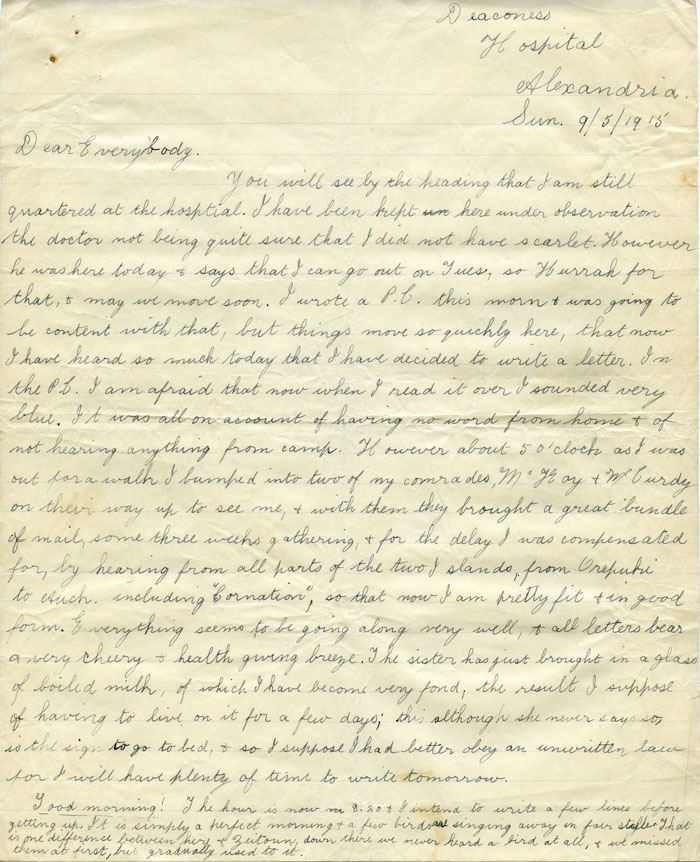 Deaconess
Hospital
Alexandria.
Sun. 9/5/1915
Dear Everybody.
You will see by the heading that I am still
quartered at the hosptial. I have been kept un here under observation
the doctor not being quite sure that I did not have scarlet. However
he was here today & says that I can go out on Tues, so Hurrah for
that, & may we move soon. I wrote a P.C. this morn & was going to
be content with that, but things move so quickly here, that now
I have heard so much today that I have decided to write a letter. In
the P.C. I am afraid that now when I read it over I sounded very
blue. It was all on account of having no word from home & of
not hearing anything from camp. However about 5 o'clock as I was
out for a walk I bumped into two of my comrades, Mc Kay & McCurdy
on their way up to see me, & with them they brought a great bundle
of mail, some three weeks gathering, & for the delay I was compensated
for, by hearing from all parts of the two Islands, from Orepuki
to Auck. including "Cornation", so that now I am pretty fit & in good
form. Everything seems to be going along very well, & all letters bear
a very cheery & health giving breeze. The sister has just brought in a glass
of boiled milk, of which I have become very fond, the result I suppose
of having to live on it for a few days; this although she never says so,
is the sign to go to bed, & so I suppose I had better obey an unwritten law
for I will have plenty of time to write tomorrow.
Good morning! The hour is now 8.20 & I intend to write a few lines before
getting up. It is simply a perfect morning & a few birds are singing away in fair style. That
is one difference between here & Zeitoun, down there we never heard a bird at all, & we missed
them at first, but gradually used to it.